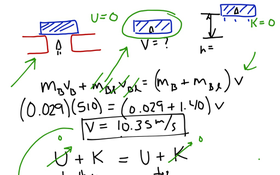 U=0
K=0
V = ?
h=
m_B v_B + m_Bl v_Bl = (m_B + m_Bl) v
(0.029)(510) = (0.029+1.40) v
V = 10.35 m/s
0 0
U + K = U + K